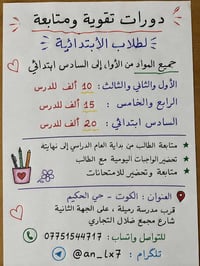 دورات تقوية ومتابعة
لطلاب الأبتدائية
جميع المواد من الأول إلى السادس ابتدائي
الأول والثاني والثالث: 10 ألف للدرس
الرابع والخامس: 15 ألف للدرس
السادس ابتدائي: 20 ألف للدرس
متابعة الطالب من بداية العام الدراسي إلى نهايته
تحضير الواجبات اليومية مع الطالب
متابعة وتحضير للامتحانات
العنوان: الكوت - حي الحكيم
قرب مدرسة رميلة، على الجهة الثانية
شارع مجمع ضلال التجاري
للتواصل واتساب: 07751544717
تلگرام: @an_lx7